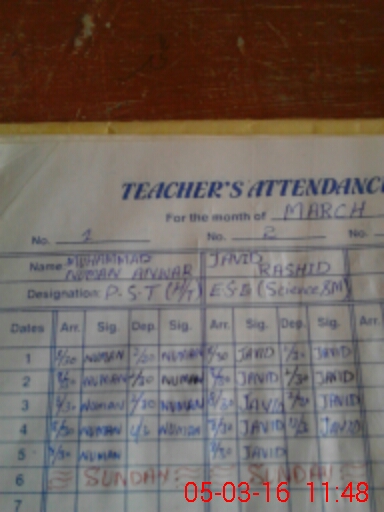 TEACHER'S ATTENDANC
For the month of MARCH
No. 1 No. 2 No.
Name MUHAMMAD NUMAN ANWAR JAVID RASHID
Designation: P.S.T (H/T) E.S.E (Science&M)
Dates Arr. Sig. Dep. Sig. Arr. Sig. Dep. Sig. Arr.
1 NUMAN NUMAN JAVID JAVID
2 NUMAN NUMAN JAVID JAVID
3 NUMAN NUMAN JAVID JAVID
4 NUMAN NUMAN JAVID JAVID
5 NUMAN JAVID
6 SUNDAY SUNDAY
7
05-03-16 11:48